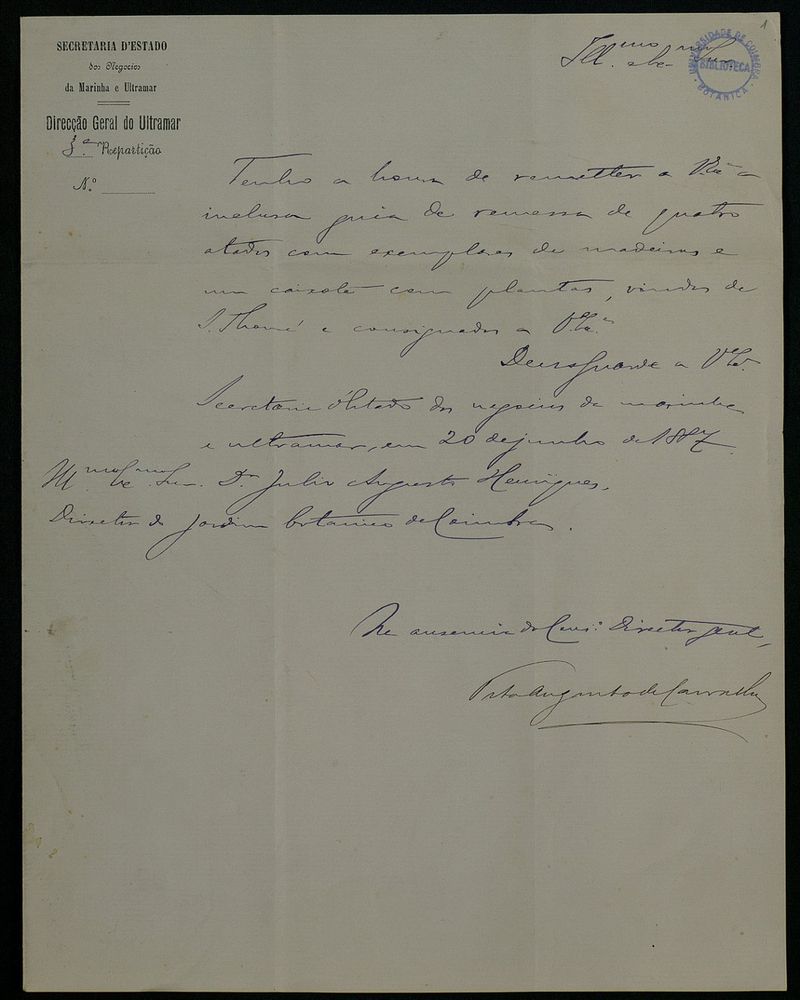 1
SECRETARIA D'ESTADO
dos Negocios
da Marinha e Ultramar
Direcção Geral do Ultramar
3.ª Repartição
N.º
Ill.mo e Ex.mo Snr.
UNIVERSIDADE DE COIMBRA
BIBLIOTECA
BOTANICA
Tenho a honra de remetter a V.Ex.ª a
inclusa guia de remessa de quatro
atados com exemplares de madeiras e
um caixote com plantas, vindos de
S. Thomé e consignados a V.Ex.ª
Deus Guarde a V.Ex.ª
Secretaria d'Estado dos negocios da marinha
e ultramar, em 20 de junho de 1887
Ill.mo Ex.mo Snr. Dr. Julio Augusto Henriques,
Director do Jardim botanico de Coimbra.
Na ausencia do Cons.º Director geral,
Augusto de Carvalho